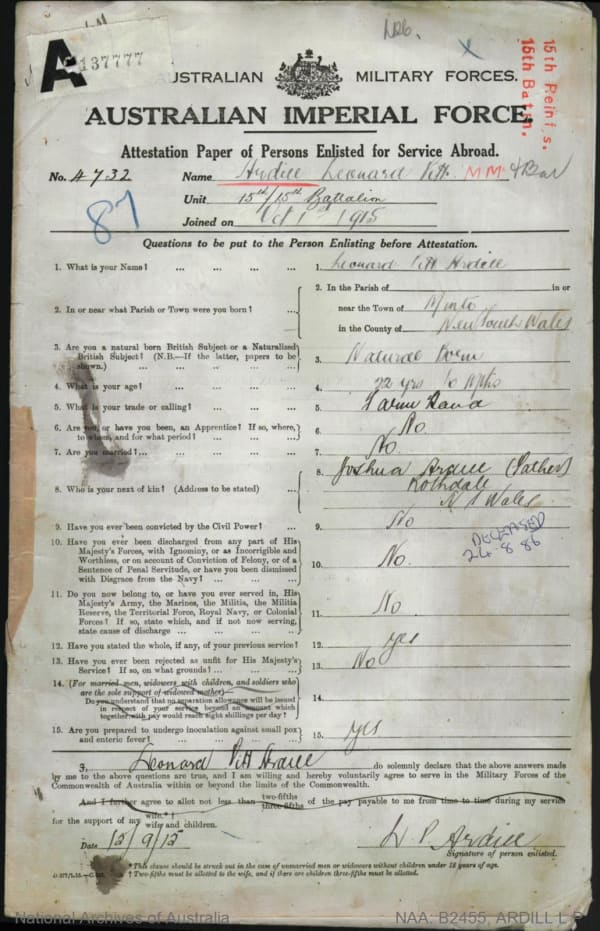 A
137777
15th Reinfs.
15th Battn.
AUSTRALIAN MILITARY FORCES.
AUSTRALIAN IMPERIAL FORCE.
Attestation Paper of Persons Enlisted for Service Abroad.
No. 4732 Name Ardill Leonard Pitt MM & Bar
87
Unit 15th/15th Battalion
Joined on Oct 1st 1915
Questions to be put to the Person Enlisting before Attestation.
1. What is your Name? ... ... ... ... 1. Leonard Pitt Ardill
2. In or near what Parish or Town were you born? ... 2. In the Parish of in or
near the Town of Minto
in the County of New South Wales
3. Are you a natural born British Subject or a Naturalized
British Subject? (N.B.—If the latter, papers to be
shown.) ... ... ... ... 3. Natural Born
4. What is your age? ... ... ... ... 4. 22 yrs 6 mths
5. What is your trade or calling? ... ... ... 5. Farm Hand
6. Are you, or have you been, an Apprentice? If so, where,
to whom, and for what period? ... ... ... 6. No
7. Are you married? ... ... ... ... 7. No.
8. Who is your next of kin? (Address to be stated) ... 8. Joshua Ardill (Father)
Rothdale
N S Wales
9. Have you ever been convicted by the Civil Power? ... 9. No
DECEASED
24.8.86
10. Have you ever been discharged from any part of His
Majesty's Forces, with Ignominy, or as Incorrigible and
Worthless, or on account of Conviction of Felony, or of a
Sentence of Penal Servitude, or have you been dismissed
with Disgrace from the Navy? ... ... ... 10. No.
11. Do you now belong to, or have you ever served in, His
Majesty's Army, the Marines, the Militia, the Militia
Reserve, the Territorial Force, Royal Navy, or Colonial
Forces? If so, state which, and if not now serving,
state cause of discharge ... ... ... ... 11. No
12. Have you stated the whole, if any, of your previous service? 12. yes
13. Have you ever been rejected as unfit for His Majesty's
Service? If so, on what grounds? ... ... ... 13. No
14. (For married men, widowers with children, and soldiers who
are the sole support of widowed mother)—
Do you understand that no separation allowance will be issued
in respect of your service beyond an amount which
together with pay would reach eight shillings per day? 14.
15. Are you prepared to undergo inoculation against small pox
and enteric fever? ... ... ... ... 15. yes
I, Leonard Pitt Ardill do solemnly declare that the above answers made
by me to the above questions are true, and I am willing and hereby voluntarily agree to serve in the Military Forces of the
Commonwealth of Australia within or beyond the limits of the Commonwealth.
And I further agree to allot not less than two-fifths three-fifths of the pay payable to me from time to time during my service
for the support of my wife.*† wife and children.
Date 15/9/15 L P Ardill
Signature of person enlisted.
*This clause should be struck out in the case of unmarried men or widowers without children under 18 years of age.
† Two-fifths must be allotted to the wife, and if there are children three-fifths must be allotted.
National Archives of Australia NAA: B2455, ARDILL L P